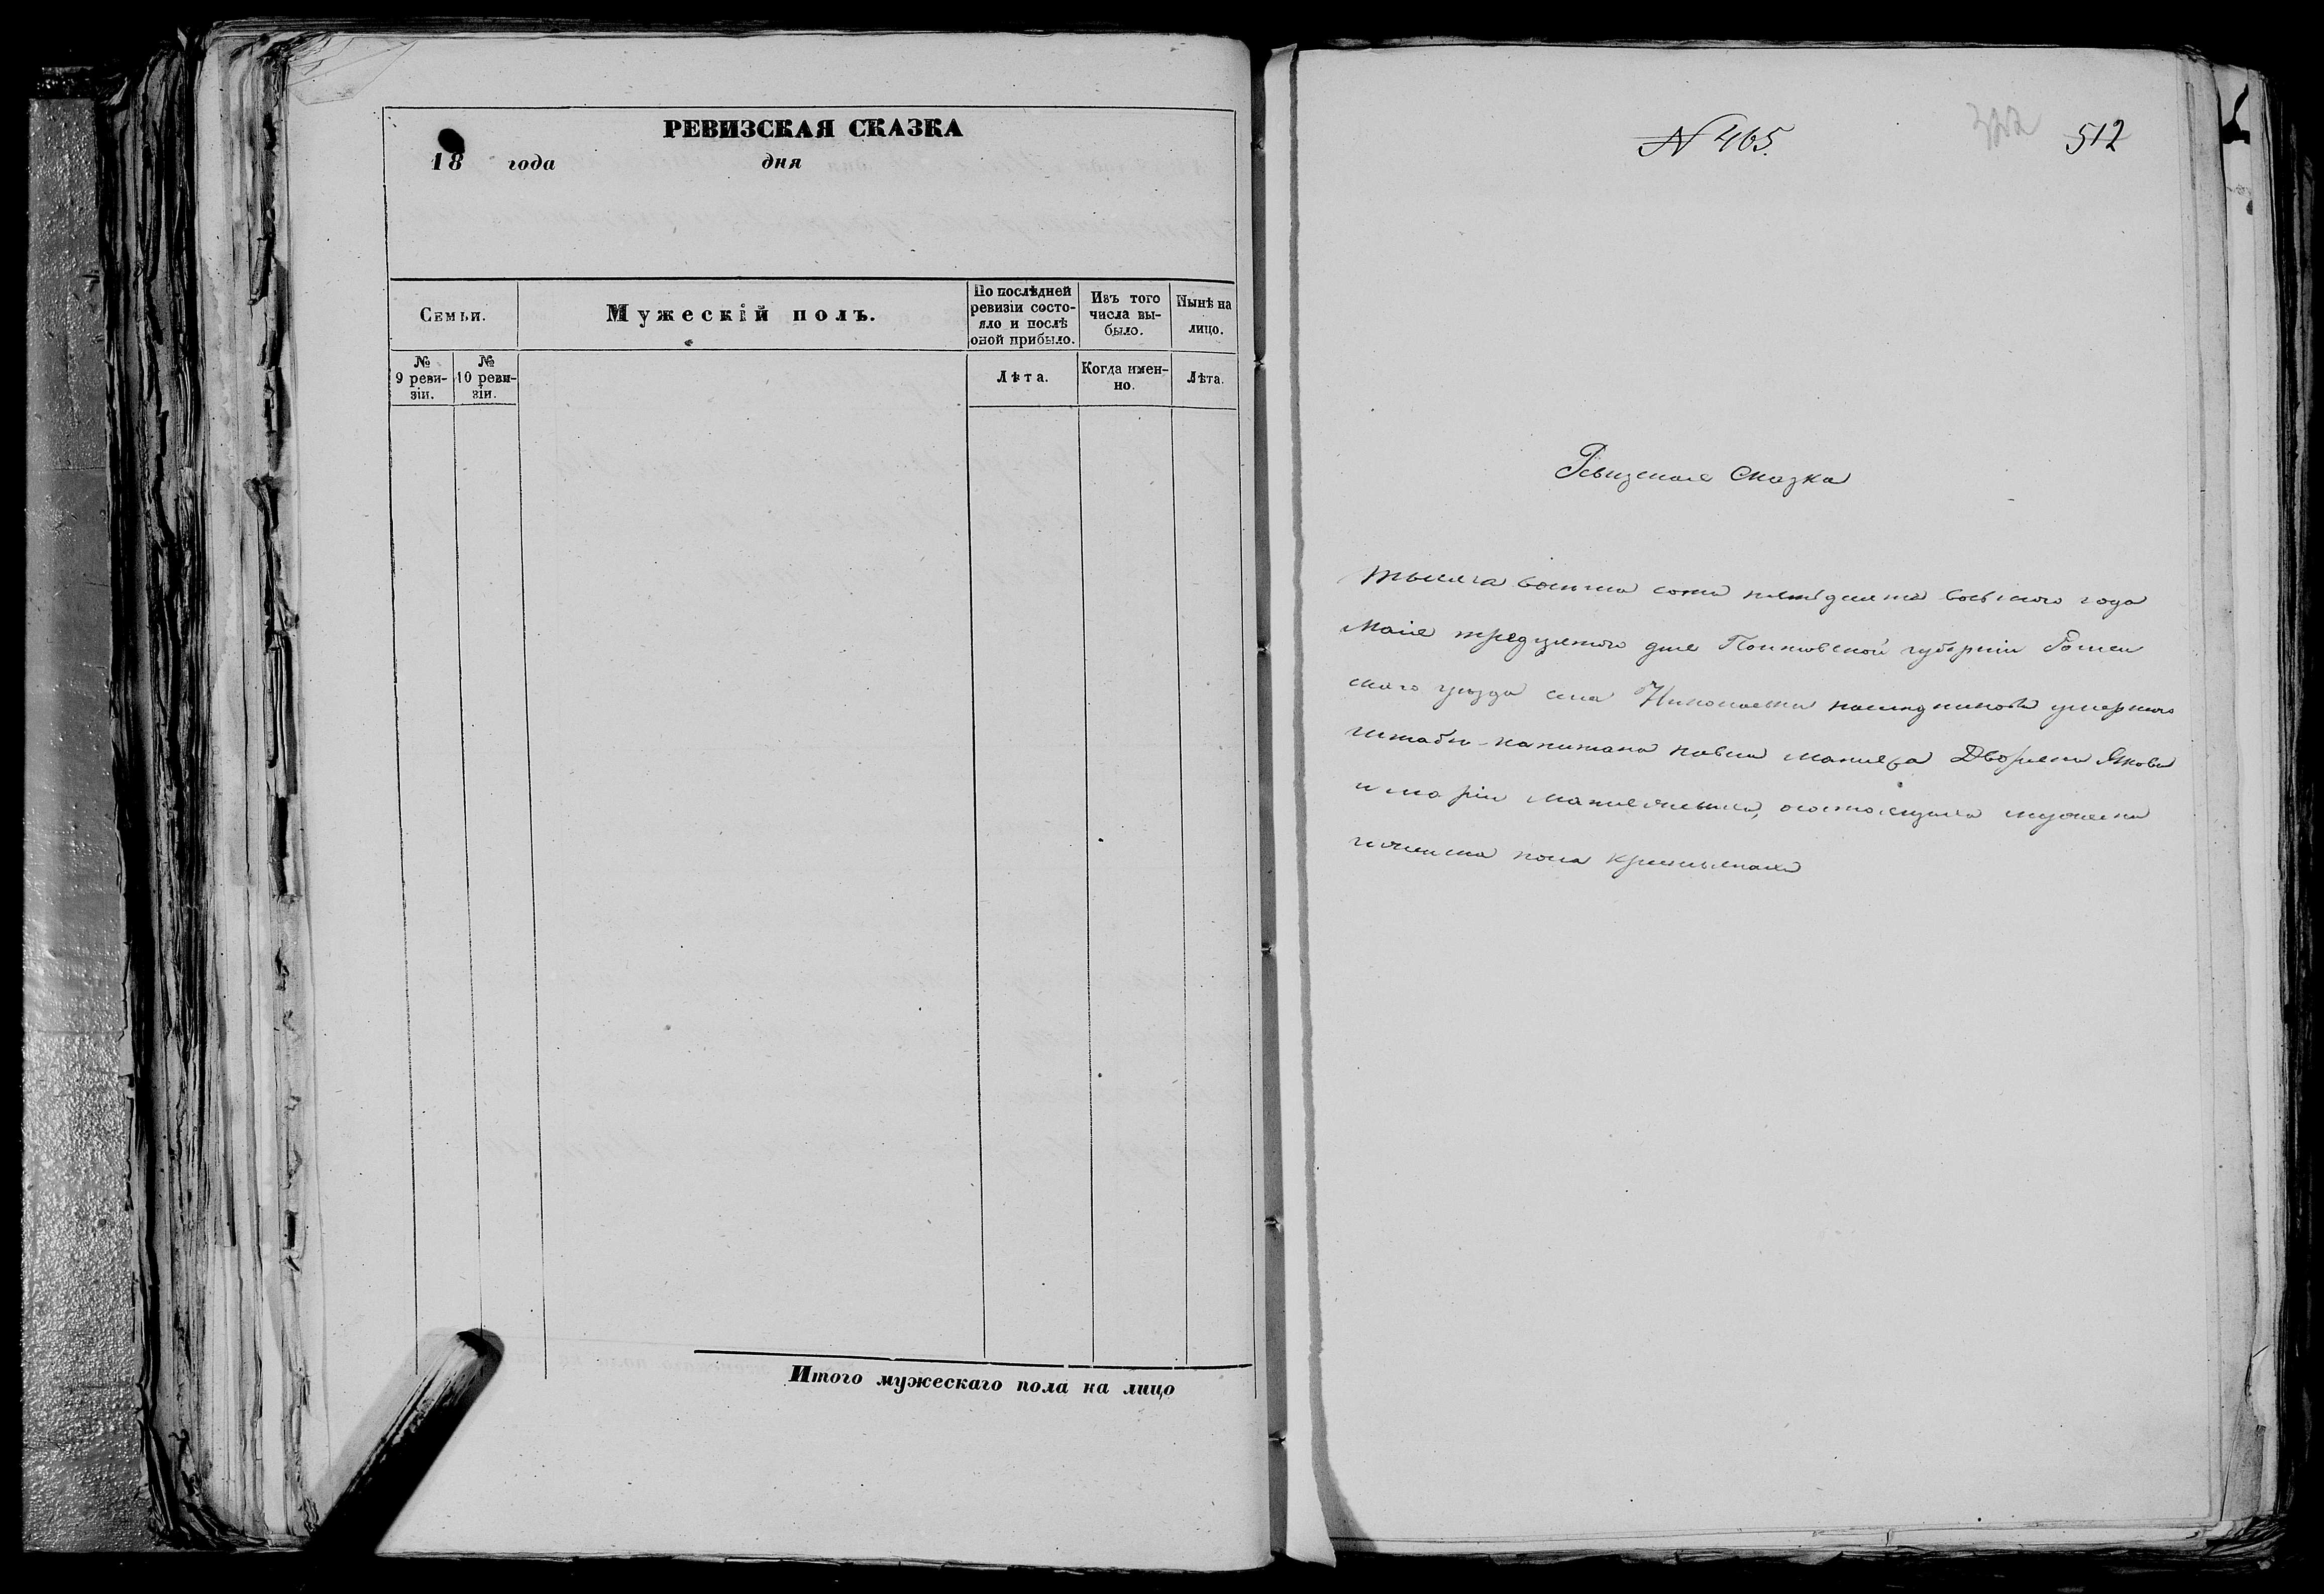 РЕВИЗСКАЯ СКАЗКА
18 года дня
Семьи.
Мужескій полъ.
По послѣдней ревизіи состо-
яло и послѣ оной прибыло.
Изъ того числа вы-
было.
Нынѣ на лицо.
№ 9 реви-
зіи.
№ 10 реви-
зіи.
Лѣта.
Когда имен-
но.
Лѣта.
Итого мужескаго пола на лицо
№ 465.
512
Ревизская Сказка
Тысяча восемьсотъ пятьдесятъ восьмого года
Мая тридцатого дня Полтавской губерніи Ромен
ского уѣзда села Николаевки наслѣдниковъ умершаго
штабсъ-капитана Дворянъ Якова
и Маріи состоящихъ мужеска
и женска пола крестьянахъ